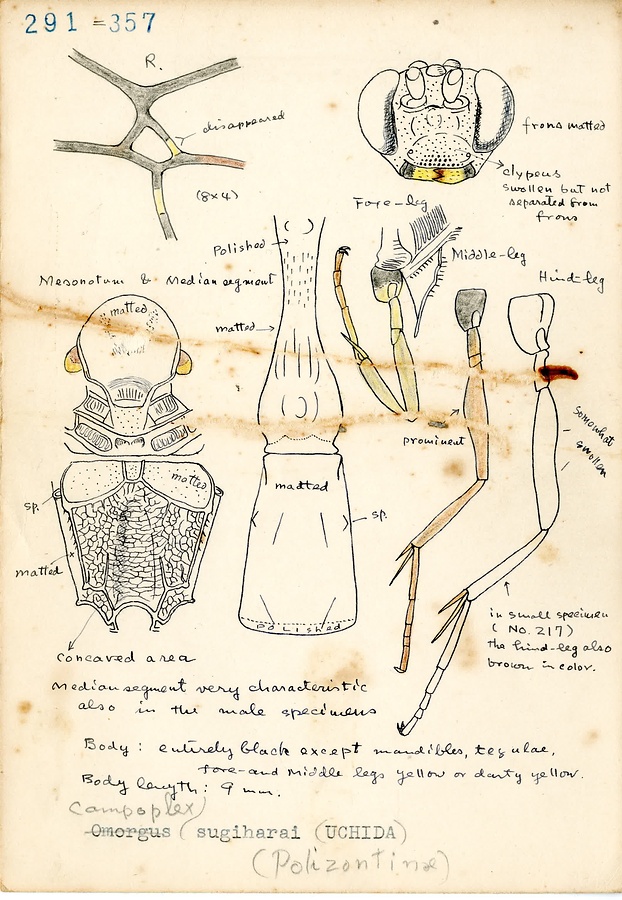 291=357
R.
disappeared
(8×4)
frons matted
clypeus
swollen but not
separated from
frons
Fore-leg
Middle-leg
Hind-leg
Polished
Mesonotum & Median segment
matted
matted
prominent
somewhat
swollen
matted
sp.
matted
madted
sp.
POLIshed
concaved area
in small specimen
(No. 217)
the hind-leg also
brown in color.
Median segment very characteristic
also in the male specimens
Body: entirely black except mandibles, tegulae,
fore-and Middle legs yellow or darty yellow.
Body length: 9 mm.
Campoplex
Omorgus (sugiharai (UCHIDA)
(Polizontinæ)